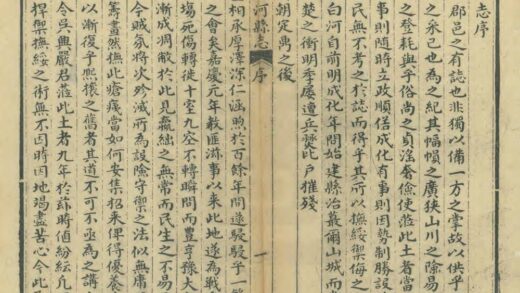 志序
郡邑之有誌也非獨以備一方之掌故以供乎
之采已也為之紀其幅幀之廣狹山川之險易
之登耗與乎俗尚之貞淫奢儉使莅此土者當
事則隨時立政順俗成化有事則因勢制勝設
民無不考之於誌而得乎其所以撫綏禦侮之
白河自前明成化年間始建縣治蕞爾山城而
楚之衝明季屢遭兵燹比戶摧殘
朝定禺之後
河縣志 序 一
相承厚澤深仁涵煦於百餘年間遂駸駸乎一
之會矣嘉慶元年教匪滋事以來此地遂為戰
塲死傷轉徙十室九空不轉瞬間而豐亨豫大
漸成凋敝於此見羸絀之無常而民生之不易
今賊氛將次殄滅所為設險守禦之法似無庸
籌畫然撫此瘡痍當如何安集招來俾得優養
以漸復乎熙攘之舊者其道不可不亟為之講
今吳興嚴君莅此土者九年於茲時值紛紜
捍禦撫綏之術無不因時因地竭盡苦心今此